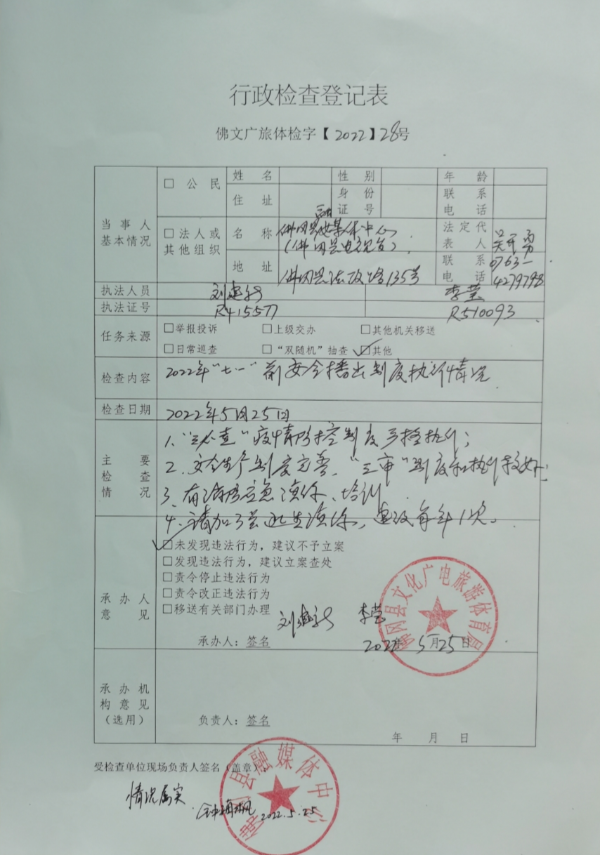 行政检查登记表
佛文广旅体检字【2022】28号
当事人
基本情况
□公民
姓名
性别
年龄
住址
身份
证号
联系
电话
□法人或
其他组织
名称
佛冈县融媒体中心
(佛冈县电视台)
法定代
表人
地址
佛冈县法政路135号
联系
电话
0763-
4279798
执法人员
李莹
执法证号
R415577
R510093
任务来源
□举报投诉 □上级交办 □其他机关移送
□日常巡查 □“双随机”抽查 ☑其他
检查内容
2022年“七一”前安全播出制度执行情况
检查日期
2022年5月25日
主要
检查
情况
1、疫情防控制度严格执行；
2、安全生产制度完善，“三审”制度和执行较好
3、有消防应急演练、培训
4、请加强逃生演练，建议每年1次。
承办人
意见
☑未发现违法行为，建议不予立案
□发现违法行为，建议立案查处
□责令停止违法行为
□责令改正违法行为
□移送有关部门办理
李莹
承办人：签名
2022年5月25日
佛冈县文化广电旅游体育局
承办机
构意见
（选用）
负责人：签名
年 月 日
受检查单位现场负责人签名（盖章）
情况属实
2022.5.25
佛冈县融媒体中心